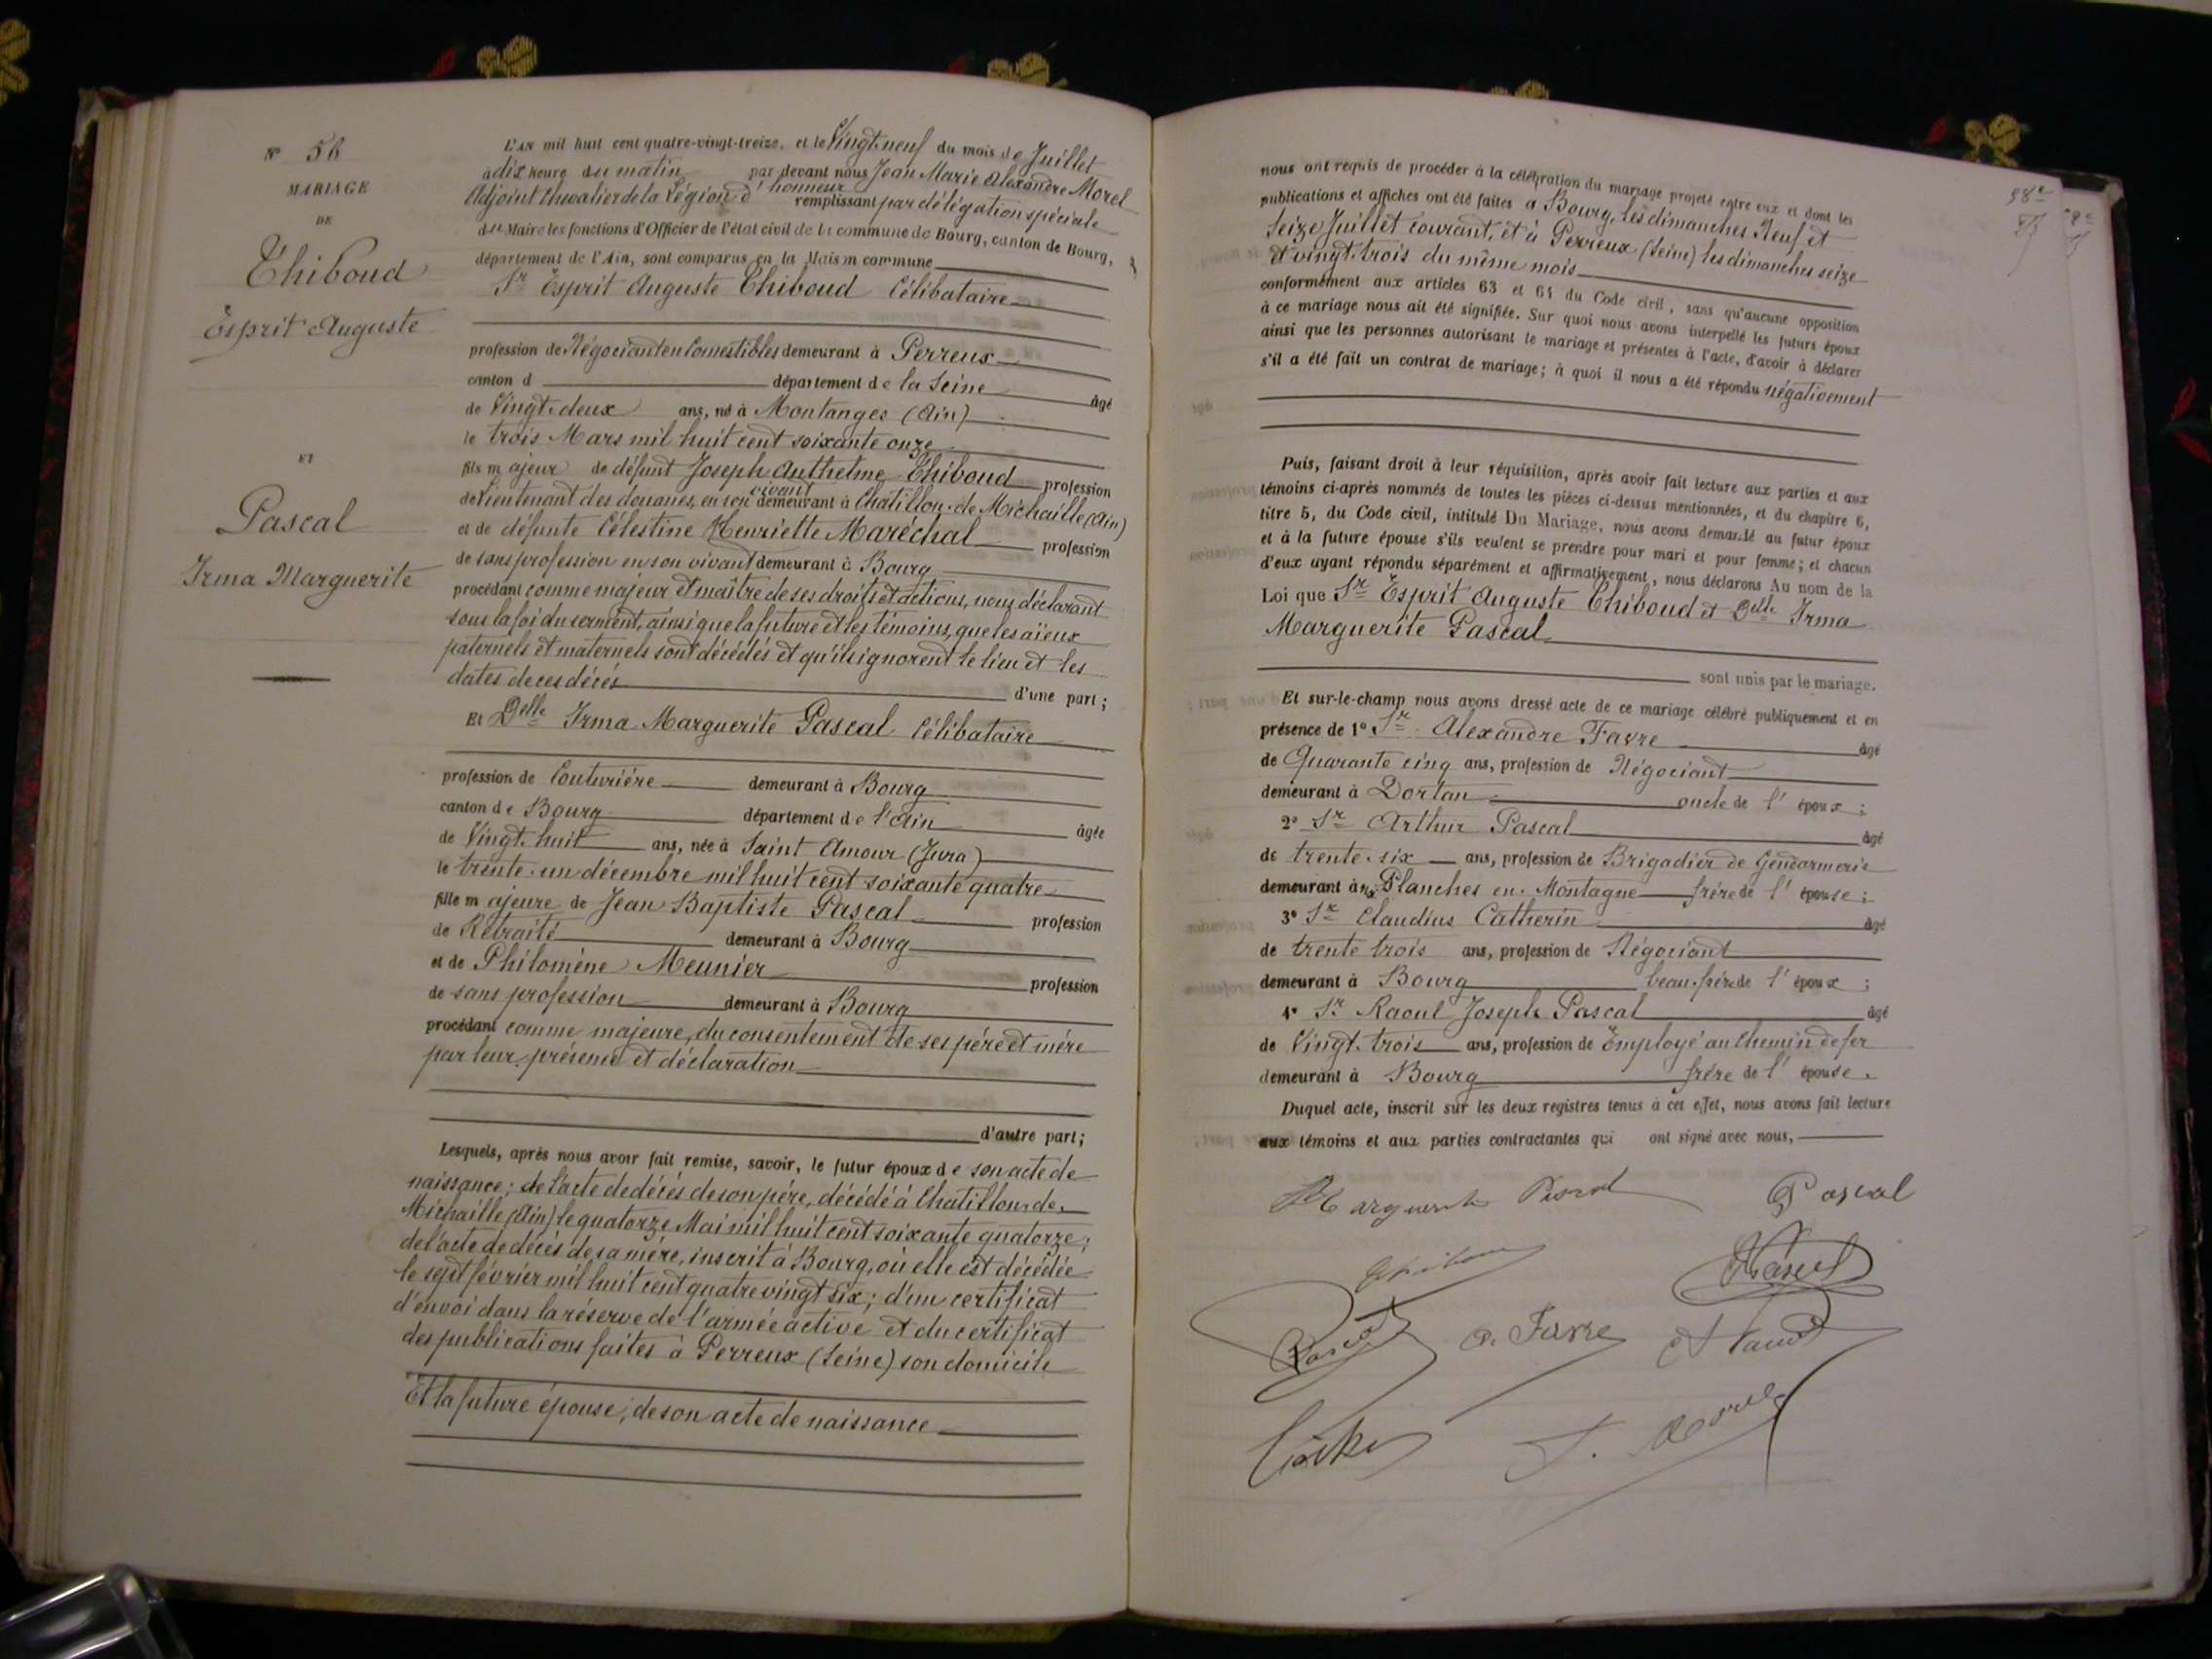 N° 56
MARIAGE
DE
Thiboud
Esprit Auguste
ET
Pascal
Irma Marguerite
L'AN mil huit cent quatre-vingt-treize, et le Vingt neuf du mois de Juillet
à dix heure du matin par devant nous Jean Marie Alexandre Morel
Adjoint Chevalier de la Légion d'honneur remplissant par délégation spéciale
du Maire les fonctions d'Officier de l'état civil de la commune de Bourg, canton de Bourg,
département de l'Ain, sont comparus en la Maison commune
Sr Esprit Auguste Thiboud Célibataire
profession de Négociant en Comestibles demeurant à Perreux
canton d département de la Seine âgé
de Vingt deux ans, né à Montanges (Ain)
le trois Mars mil huit cent soixante onze
fils majeur de défunt Joseph Anthelme Thiboud profession
de Lieutenant des douanes, en son vivant demeurant à Chatillon-de-Michaille (Ain)
et de défunte Célestine Henriette Maréchal profession
de sans profession en son vivant demeurant à Bourg
procédant comme majeur et maître de ses droits et actions, nous déclarant
sous la foi du serment, ainsi que la future et les témoins, que les aïeux
paternels et maternels sont décédés et qu'ils ignorent le lieu et les
dates de ces décés d'une part;
Et Delle Irma Marguerite Pascal Célibataire
profession de Couturière demeurant à Bourg
canton de Bourg département de l'Ain âgée
de Vingt huit ans, née à Saint Amour (Jura)
le trente-un décembre mil huit cent soixante quatre
fille majeure de Jean Baptiste Pascal profession
de Retraité demeurant à Bourg
et de Philomène Meunier profession
de sans profession demeurant à Bourg
procédant comme majeure, du consentement de ses père et mère
par leur présence et déclaration
d'autre part;
Lesquels, après nous avoir fait remise, savoir, le futur époux de son acte de
naissance; de l'acte de décès de son père, décédé à Chatillon-de-
Michaille (Ain) le quatorze Mai mil huit cent soixante quatorze;
de l'acte de décès de sa mère, inscrit à Bourg, où elle est décédée
le sept février mil huit cent quatre vingt six; d'un certificat
d'envoi dans la réserve de l'armée active et du certificat
des publications faites à Perreux (Seine) son domicile
Et la future épouse; de son acte de naissance
58e
nous ont requis de procéder à la célébration du mariage projeté entre eux et dont les
publications et affiches ont été faites à Bourg, les dimanches Neuf et
Seize Juillet courant, et à Perreux (Seine) les dimanches seize
et vingt-trois du même mois
conformément aux articles 63 et 64 du Code civil, sans qu'aucune opposition
à ce mariage nous ait été signifiée. Sur quoi nous avons interpellé les futurs époux
ainsi que les personnes autorisant le mariage et présentes à l'acte, d'avoir à déclarer
s'il a été fait un contrat de mariage; à quoi il nous a été répondu négativement
Puis, faisant droit à leur réquisition, après avoir fait lecture aux parties et aux
témoins ci-après nommés de toutes les pièces ci-dessus mentionnées, et du chapitre 6,
titre 5, du Code civil, intitulé Du Mariage, nous avons demandé au futur époux
et à la future épouse s'ils veulent se prendre pour mari et pour femme; et chacun
d'eux ayant répondu séparément et affirmativement, nous déclarons Au nom de la
Loi que Sr Esprit Auguste Thiboud et Delle Irma
Marguerite Pascal
sont unis par le mariage.
Et sur-le-champ nous avons dressé acte de ce mariage célébré publiquement et en
présence de 1° Sr Alexandre Favre âgé
de Quarante cinq ans, profession de Négociant
demeurant à Dortan oncle de l'époux;
2° Sr Arthur Pascal âgé
de trente-six ans, profession de Brigadier de Gendarmerie
demeurant à Planches en Montagne frère de l'épouse;
3° Sr Claudius Catherin âgé
de trente trois ans, profession de Négociant
demeurant à Bourg beau-frère de l'époux;
4° Sr Raoul Joseph Pascal âgé
de Vingt-trois ans, profession de Employé au Chemin de fer
demeurant à Bourg frère de l'épouse.
Duquel acte, inscrit sur les deux registres tenus à cet effet, nous avons fait lecture
aux témoins et aux parties contractantes qui ont signé avec nous,
Marguerite Pascal Pascal
Pascal
Pascal A. Favre